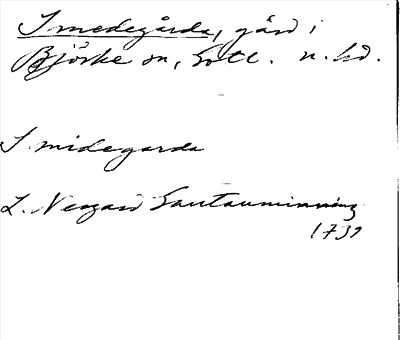 Smedegårda, gård i
Björke sn, Gotl. n. hd.
Smidegarda
L. Neogard Gautauminning
1732